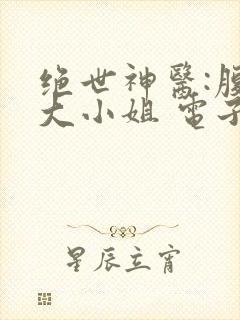 绝世神醫:腹
大小姐 電子
星辰立宵